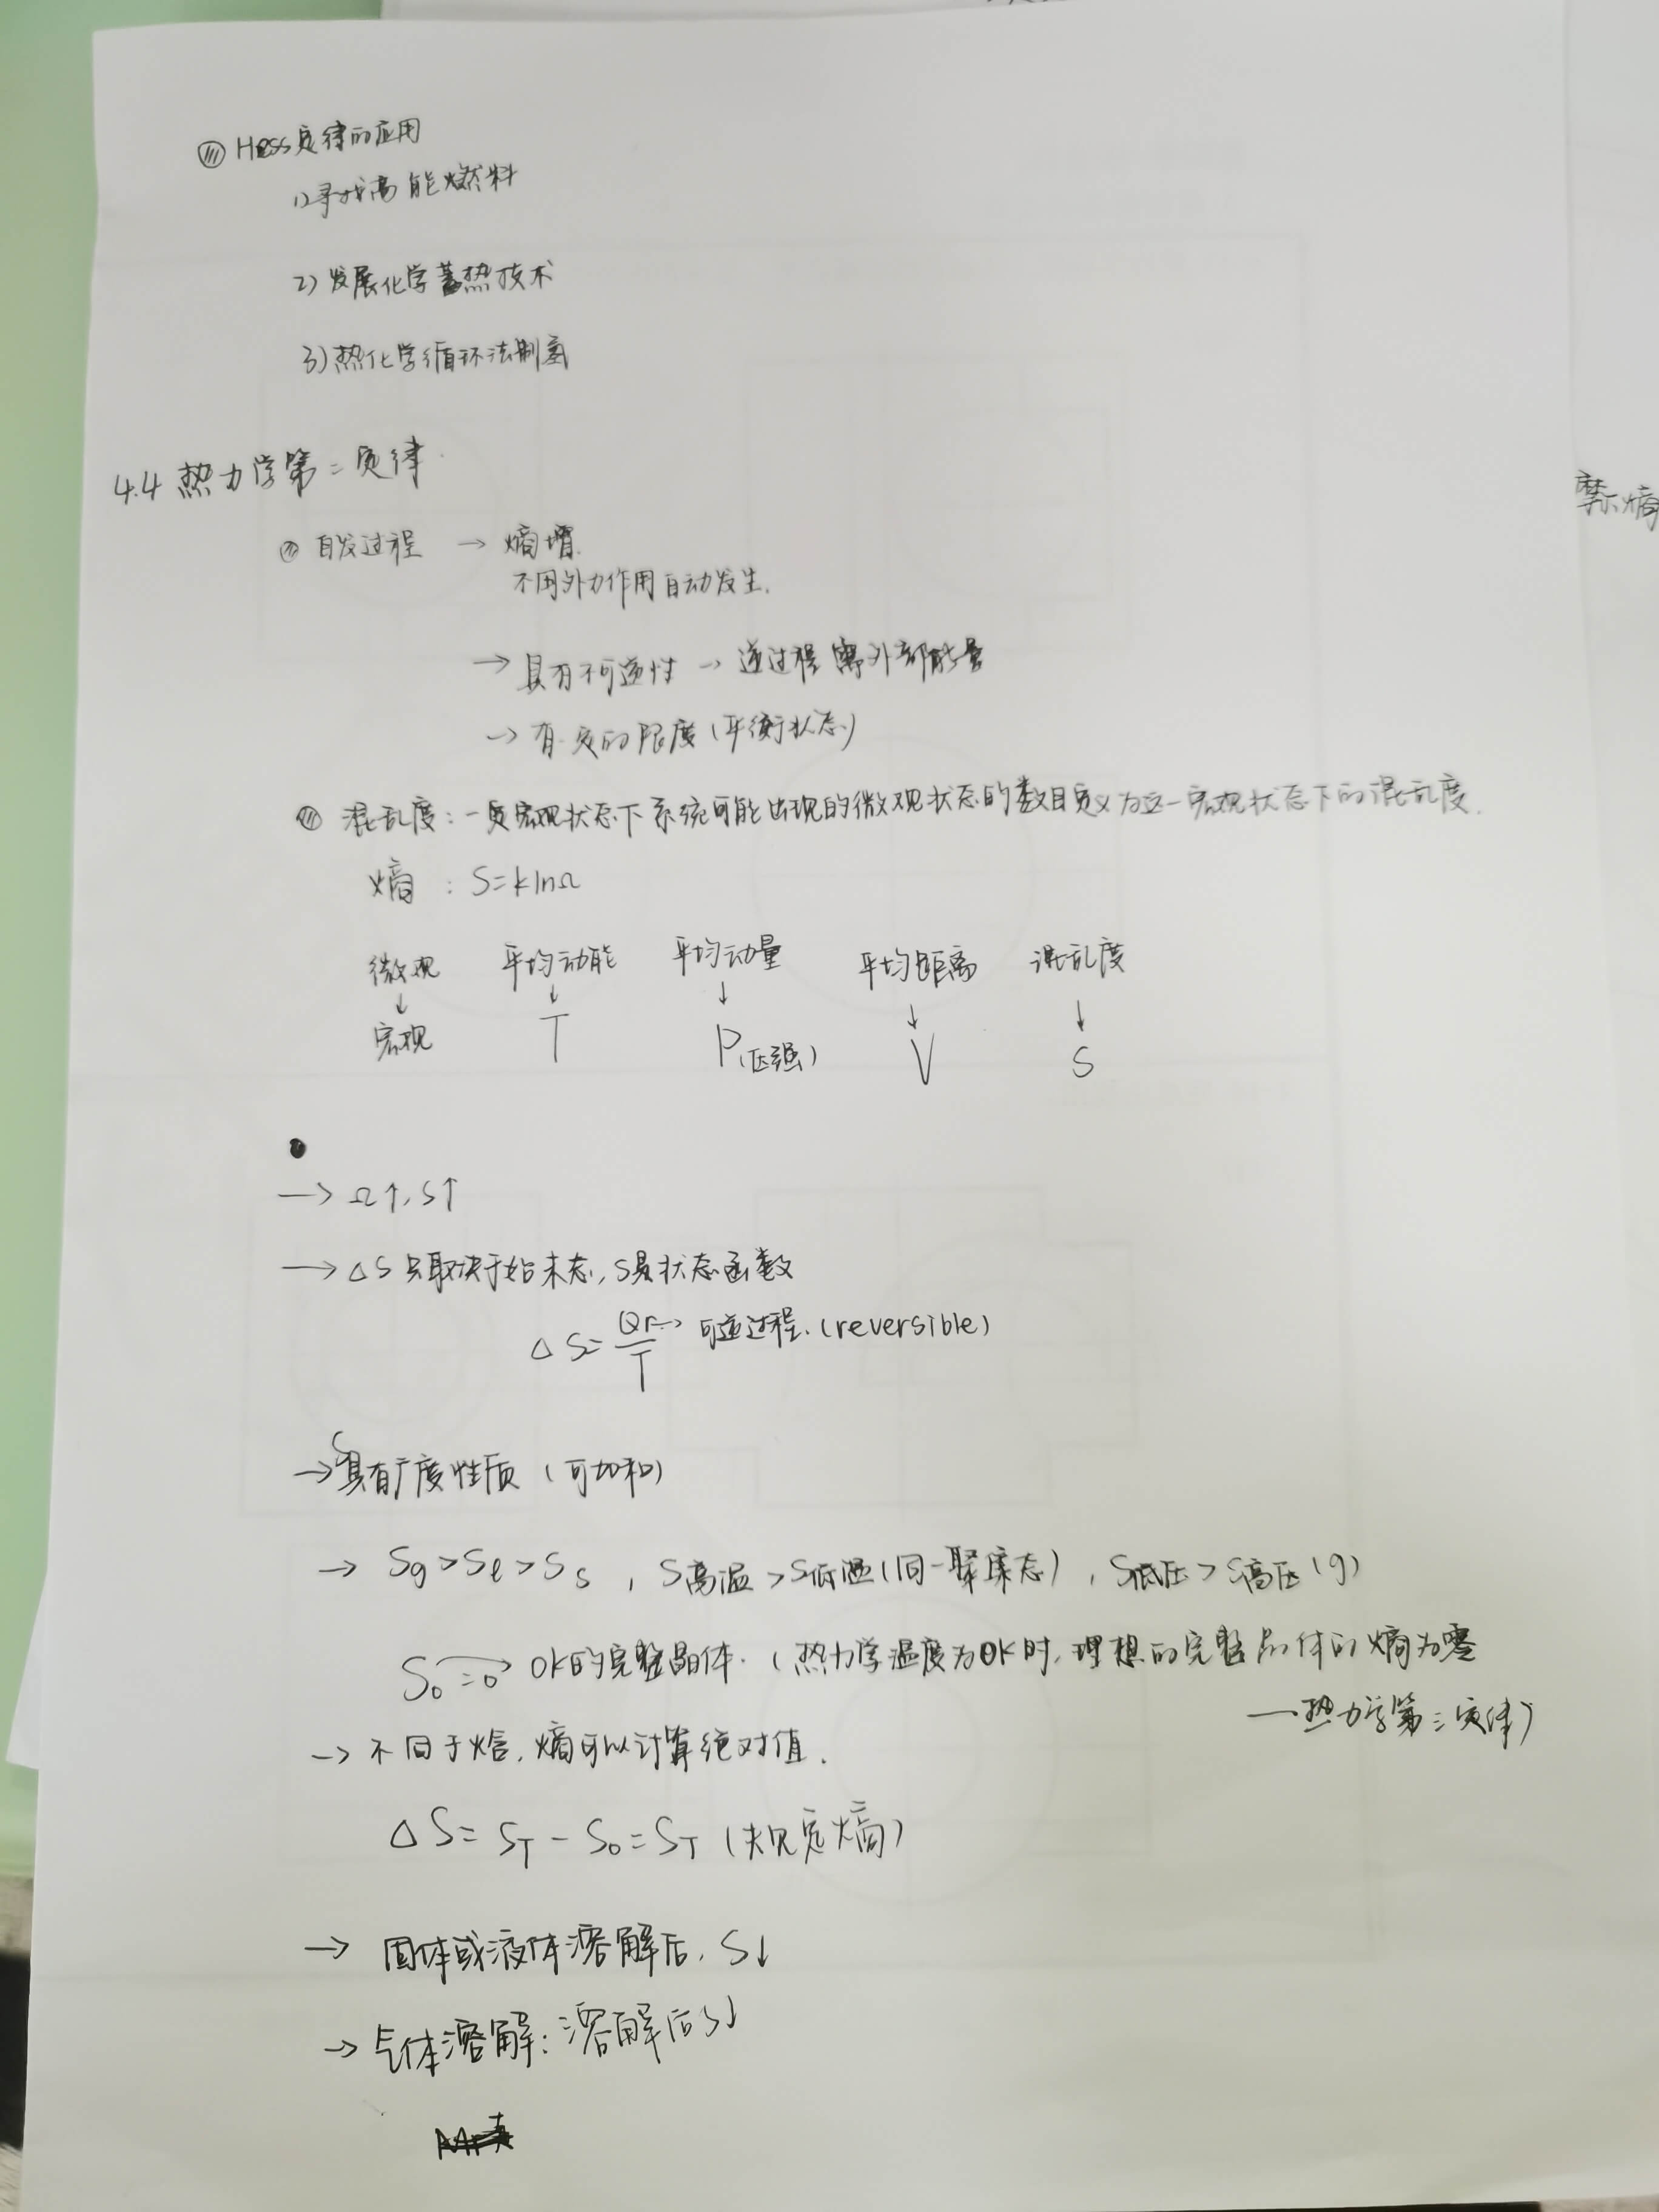 Hess定律的应用
1)寻找高能燃料
2)发展化学蓄热技术
3)热化学循环法制氢
4.4 热力学第二定律
自发过程 → 熵增.
不用外力作用自动发生.
→ 具有不可逆性 → 逆过程需外部能量
→ 有一定的限度(平衡状态)
混乱度:一定宏观状态下系统可能出现的微观状态的数目定义为这一宏观状态下的混乱度.
熵 : S=klnΩ
微观 平均动能 平均动量 平均距离 混乱度
↓ ↓ ↓ ↓ ↓
宏观 T P(压强) V S
→ Ω↑, S↑
→ ΔS只取决于始末态, S是状态函数
ΔS= Qr/T → 可逆过程. (reversible)
→ S具有广度性质 (可加和)
→ Sg > Sl > Ss , S高温 > S低温(同一聚集态) , S低压 > S高压(g)
S₀=0 → 0K的完整晶体. (热力学温度为0K时, 理想的完整晶体的熵为零
—热力学第三定律)
→ 不同于焓, 熵可以计算绝对值.
ΔS = S_T - S₀ = S_T (规定熵)
→ 固体或液体溶解后, S↓
→ 气体溶解: 溶解后S↓
摩尔熵